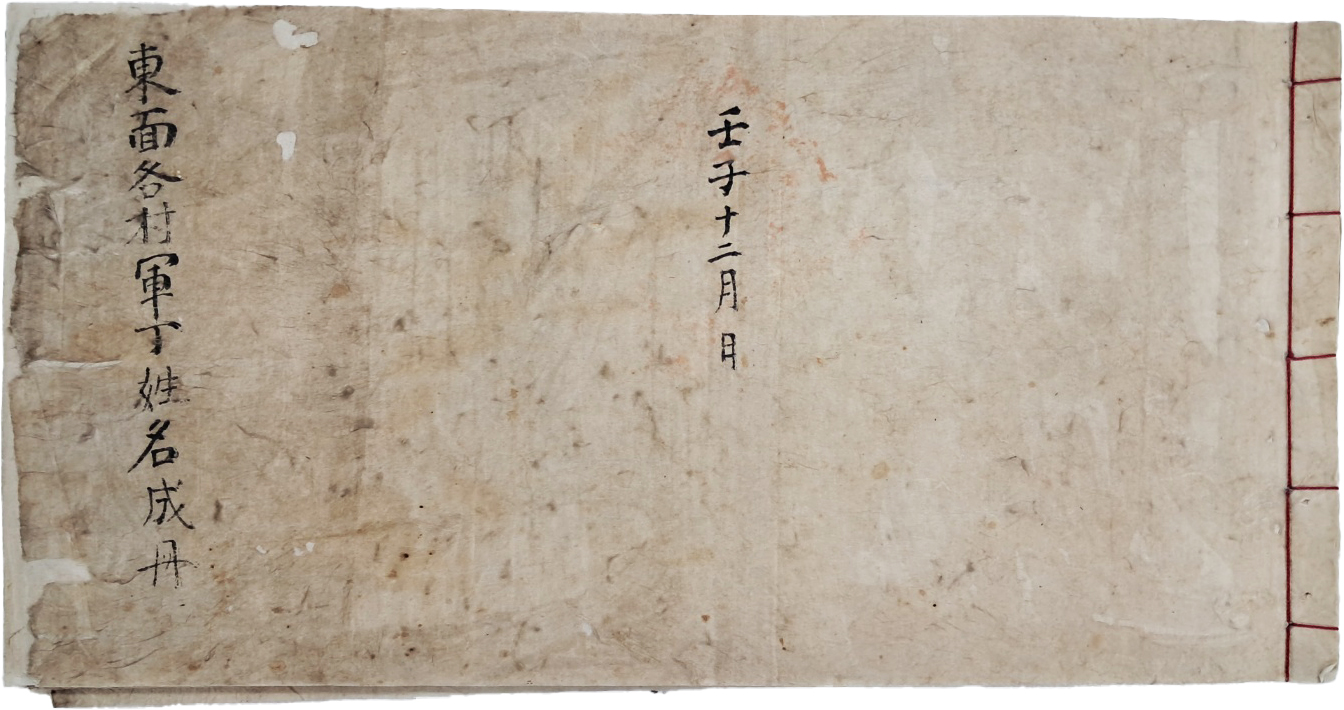 壬子十二月 日
東面各村軍丁姓名成册